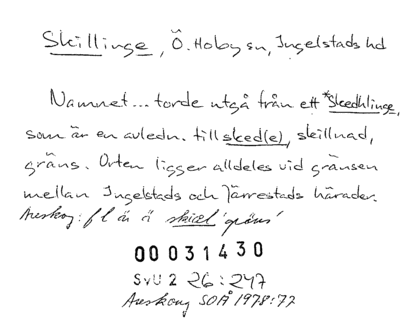 Skillinge, Ö. Hoby sn, Ingelstads hd
Namnet... torde utgå från ett *Skedhlinge,
som är en avledn. till sked(e), skillnad,
gräns. Orten ligger alldeles vid gränsen
mellan Ingelstads och Järrestads härader.
Areskog: fl än ä skiæl 'gräns'
00031430
SvU 2 26:247
Areskoug SOÅ 1978:77